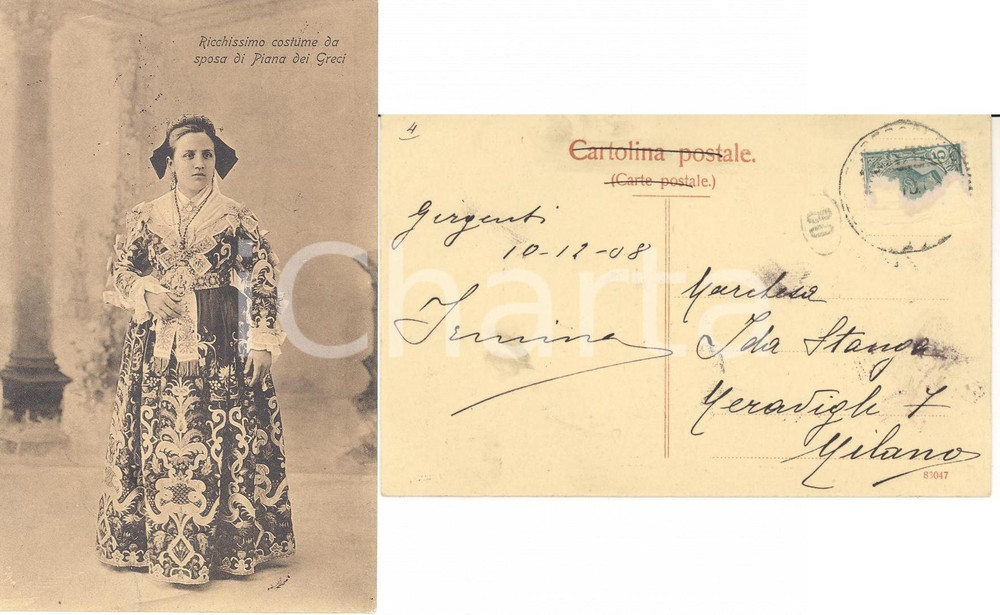 Ricchissimo costume da
sposa di Piana dei Greci
iCharta
4
Cartolina postale.
(Carte postale.)
Girgenti
10-12-08
Irmina
Marchesa
Ida Stanga
Meravigli 7
Milano
83047